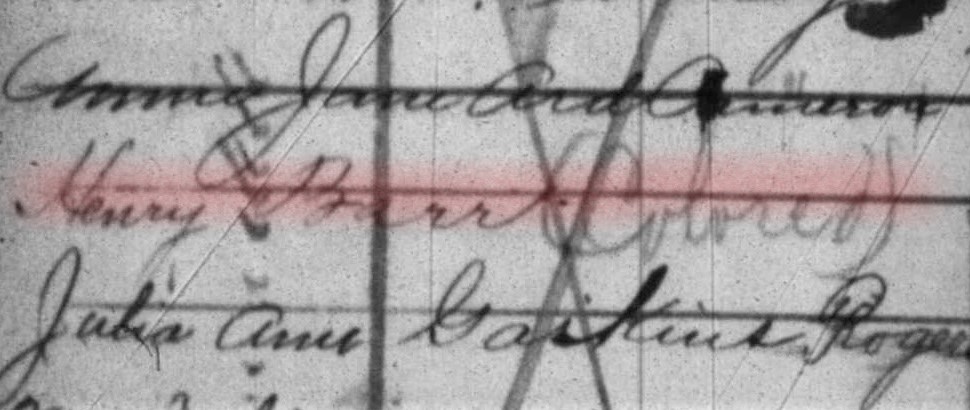 Annie Jane Ard Cameron
Henry C Barr (Colored)
Julia Ann Gaskins Rogers